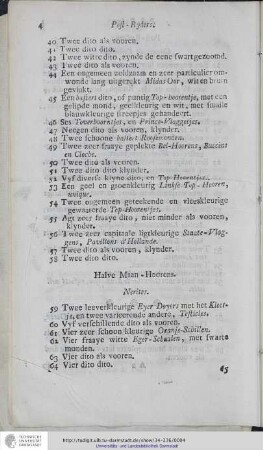 4 Post-Ryders.
40 Twee dito als vooren.
41 Twee dito dito.
42 Twee witte dito, zynde de eene swartgezoomd.
43 Twee dito als vooren.
44 Een ongemeen zeldzaam en zeer particulier om-
wonde lang uitgerekt Midas Oor, wit en bruin
gevlakt.
45 Een bastert dito, of puntig Top-hoorentje, met een
gelipde mond, geelkleurig en wit, met smalle
blauwkleurige streepjes gebandeert.
46 Ses Tooverhoorntjes, en Prince-Vlaggetjes.
47 Neegen dito als vooren, klynder.
48 Twee schoone bastert
49 Twee zeer fraaye geplekte Bel-Hoorens, Buccins
en Cloche.
50 Twee dito als vooren.
51 Twee dito dito klynder.
52 Vyf diverse klyne dito, en Top-Hoorentjes.
53 Een geel en groenkleurig Linkse Top-Hooren,
unique.
54 Twee ongemeen getekende en vleeskleurige
gewaterde Top-Hoorentjes.
55 Agt zeer fraaye dito, niet minder als vooren,
klynder.
56 Twee zeer capitaale ligtkleurige Staate-Vlag-
gens, Pavillons d'Hollande.
57 Twee dito als vooren, klynder.
58 Twee dito dito.
Halve Maan-Hoorens.
Nerites.
59 Twee leeverkleurige Eyer Doyers met het Kleet-
je, en twee varieerende andere, Testicles.
60 Vyf verschillende dito als vooren.
61 Vier zeer schoon kleurige Oranje-Schillen.
62 Vier fraaye witte Eyer-Schaalen, met swarte
monden.
63 Vier dito als vooren.
64 Vier dito dito.
65
TECHNISCHE
UNIVERSITÄT
DARMSTADT
Universitäts- und Landesbibliothek Darmstadt